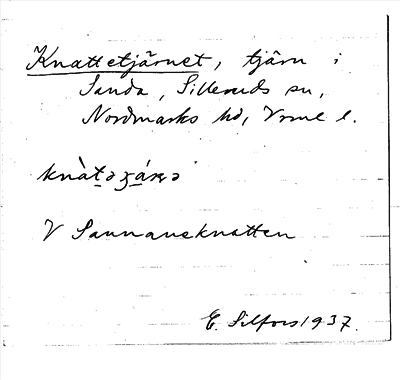 Knattetjärnet, tjärn i
Sanda, Silleruds sn,
Nordmarks hd, Vrml l.
V Sannaneknatten
E. Silfors 1937.